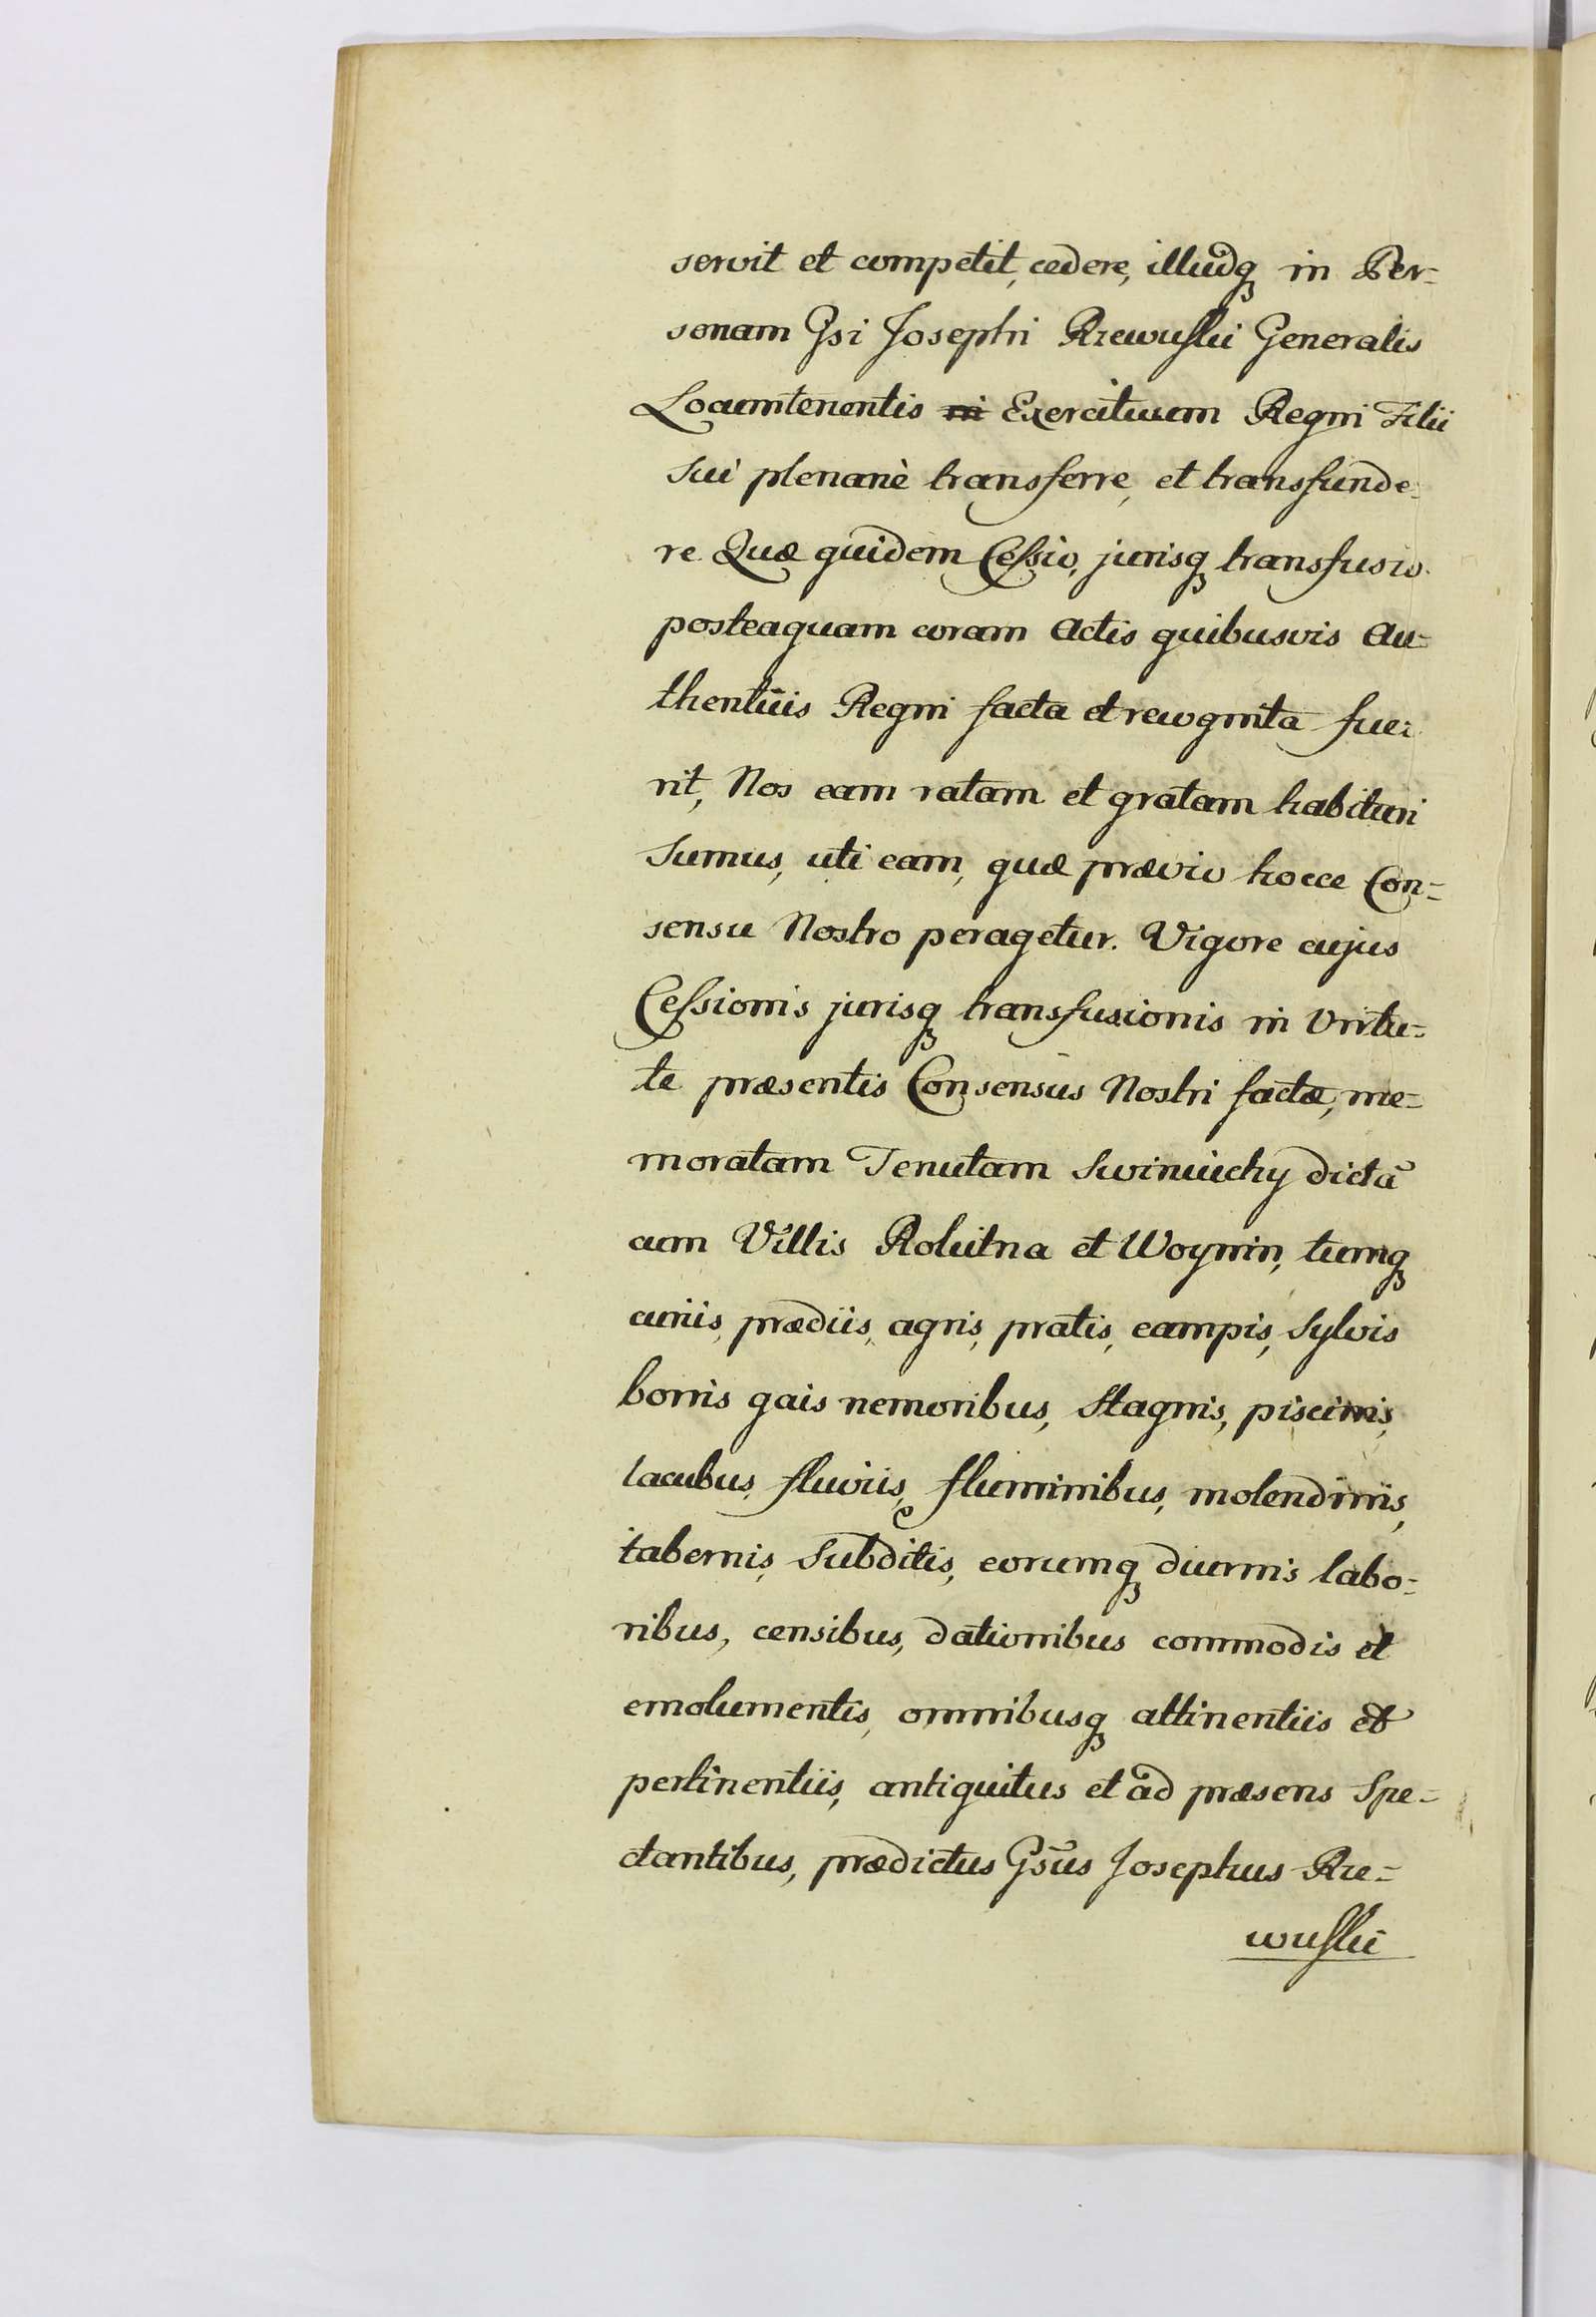 servit et competit, cedere, illudq in Per=
sonam Gsi Josephi Rzewuskii Generalis
Locumtenentis Exercituum Regni Filii
Sui plenariè transferre, et transfunde=
re. Quæ quidem Cessio, jurisq transfusio
posteaquam coram Actis quibusvis Au=
thenticis Regni facta et recognita fue=
rit, Nos eam ratam et gratam habituri
Sumus, uti eam, quæ prævio hocce Con=
sensu Nostro peragetur. Vigore cujus
Cessionis jurisq transfusionis in Virtu=
te præsentis Consensus Nostri factæ, me=
moratam Tenutam Swiniuchy dictã
cum Villis Rokitna et Woynin, tumq
curiis, prædiis, agris, pratis, campis, Sylvis
borris gais nemoribus, Stagnis, piscinis,
lacubus, fluviis, fluminibus, molendinis,
tabernis, Subditis, eorumq diurnis labo=
ribus, censibus, dationibus commodis et
emolumentis, omnibusq attinentiis et
pertinentiis, antiquitus et ad præsens Spe=
ctantibus, prædictus Gsus Josephus Rze=
wuskii